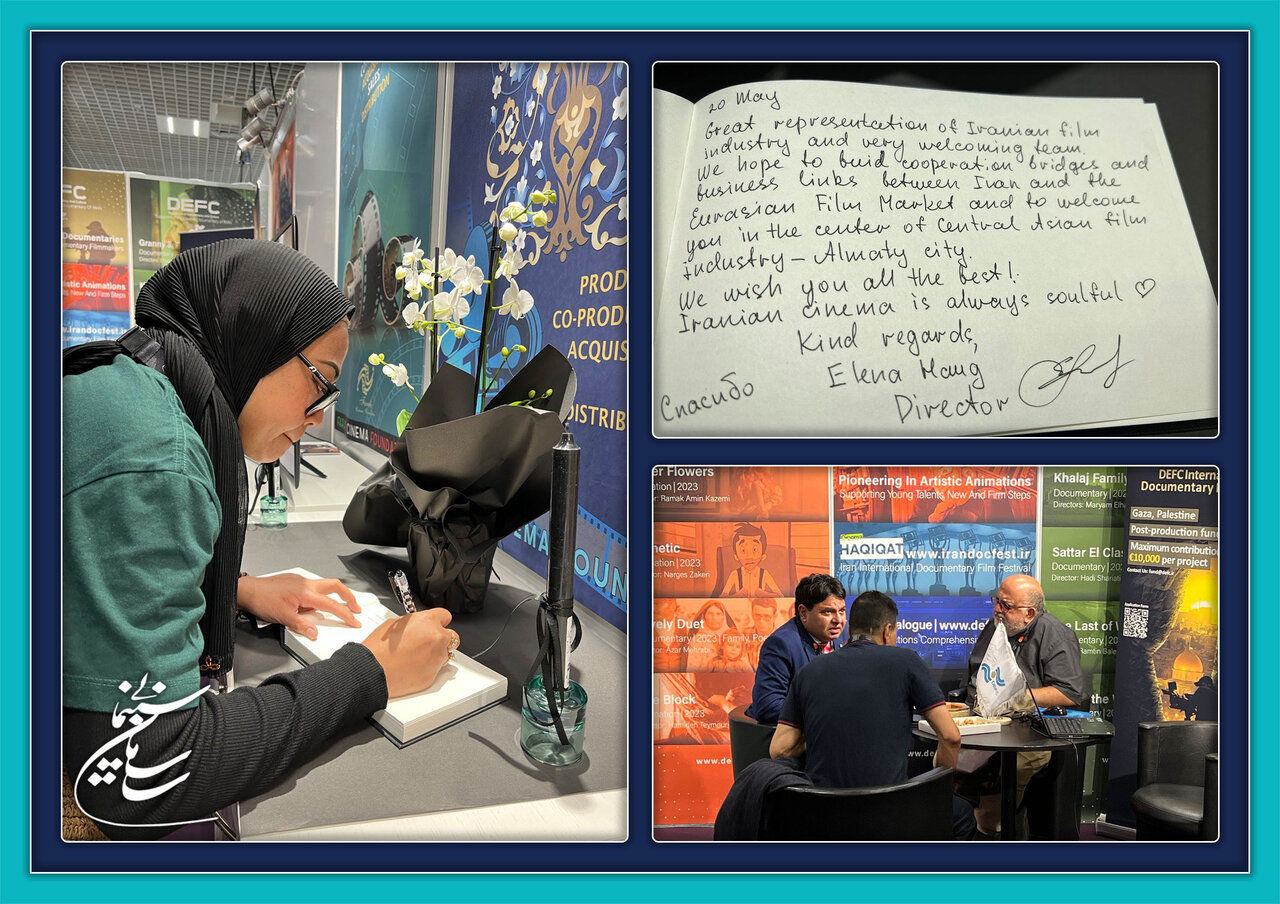 SALES
DISTRIBUTION
FC
DEFC
Documentaries
Documentary Filmmakers
Artistic Animations
New And Firm Steps
www.irandocfest.ir
PROD
CO-PROD
ACQUIS
DISTRIB
CINEMA FOUNDA
EMA FOUN
سازمان سینمایی
20 May
Great representation of Iranian film
industry and very welcoming team.
We hope to buid cooperation bridges and
business links between Iran and the
Eurasian Film Market and to welcome
you in the center of Central Asian film
industry – Almaty city.
We wish you all the best!
Iranian cinema is always soulful ♡
Kind regards,
Elena
Director
Спасибо
er Flowers
ation|2023
or: Ramak Amin Kazemi
netic
ation|2023
or: Narges Zakeri
vely Duet
umentary|2023|Family, Po
or: Azar Mehrabi
e Block
mation|2023
www.de
Pioneering In Artistic Animations
Supporting Young Talents, New And Firm Steps
HAQIQAT www.irandocfest.ir
Iran International Documentary Film Festival
alogue|www.def
tions Comprehensi
Khalaj Family
Documentary|202
Directors: Maryam Elh
Sattar El Clas
Documentary
Director: Hadi Shariati
e Last of
Ramtin Bale
the W
DEFC Interna
Documentary
Gaza, Palestine
Post-production fun
Maximum contributio
€10,000 per project